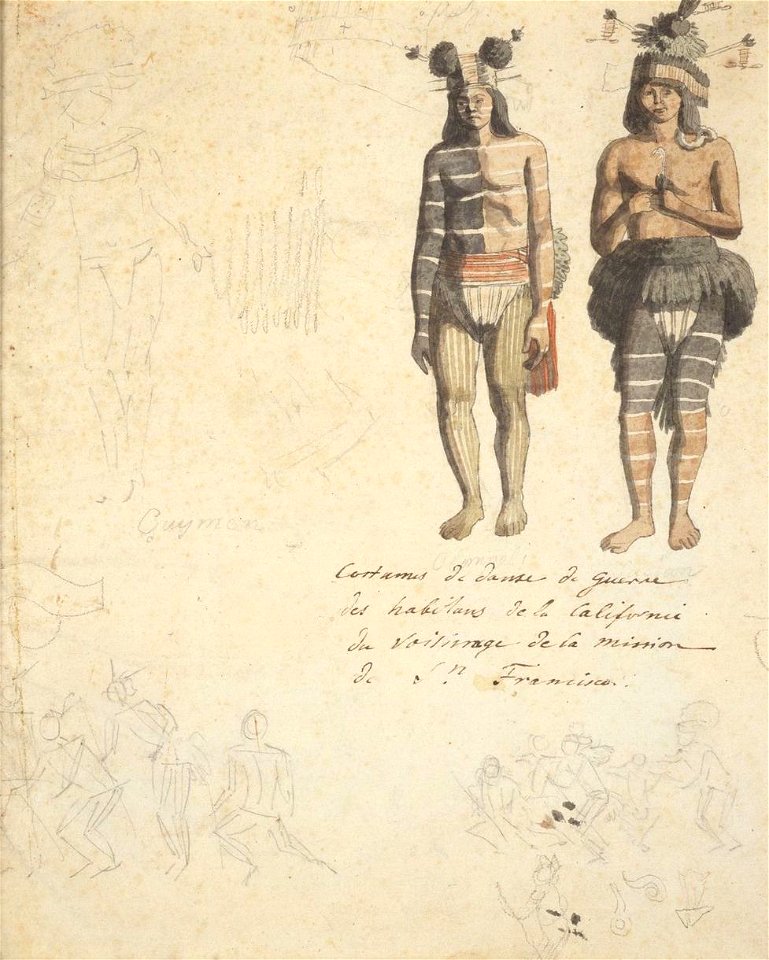 Guymen
Costumes de danse de Guerre
des habitans de la Californie
du Voisinage de la mission
de Sn Francisco.